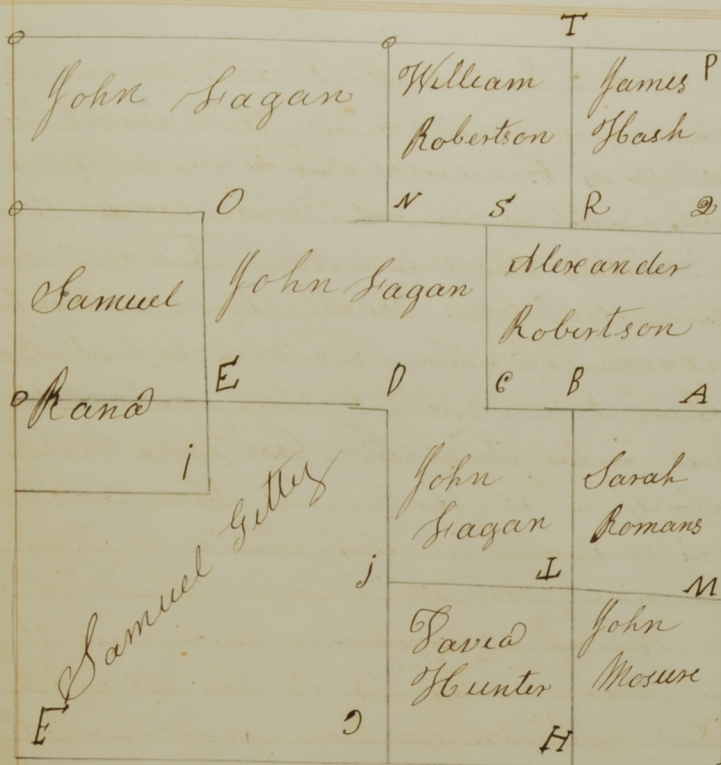 T
John Fagan
William
Robertson
James
Hash
P
N
S
R
Q
O
Samuel
Rand
John Fagan
Alexander
Robertson
E
D
C
B
A
i
Samuel Gettey
John
Fagan
Sarah
Romans
j
I
M
David
Hunter
John
Mosure
F
H